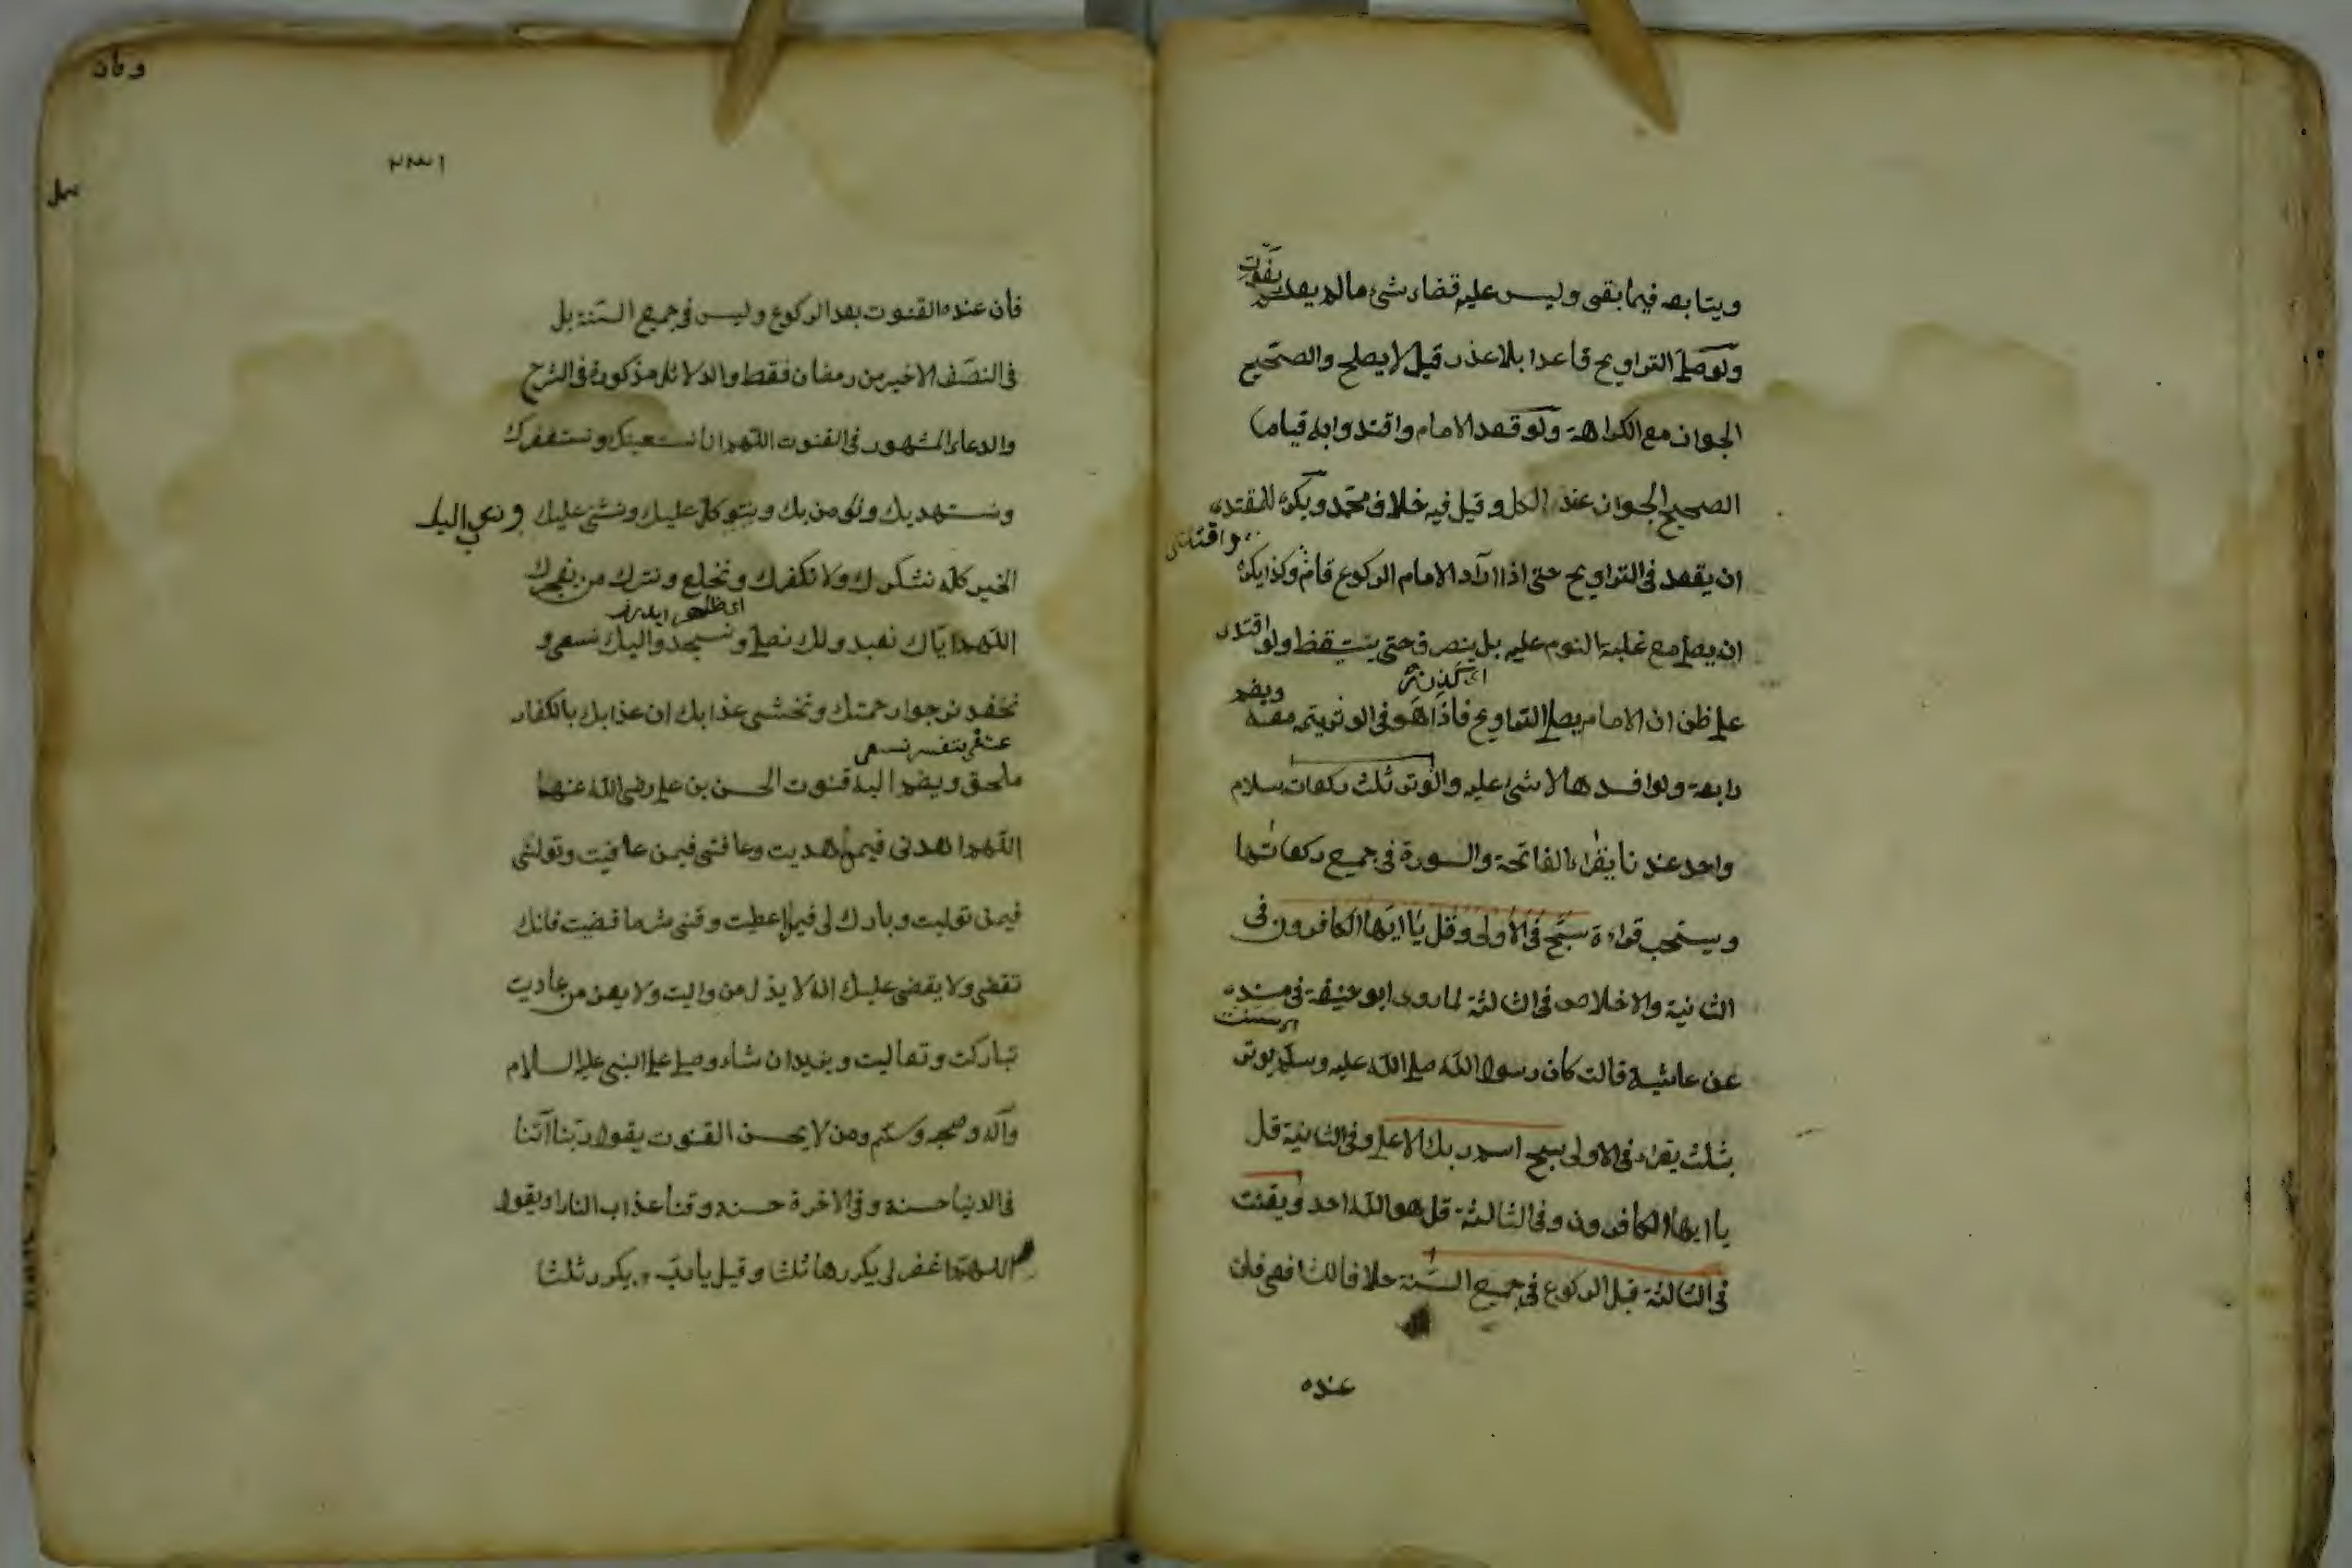 ويتابعه فيما بقى وليس عليه قضاء شئ مالم يعد
ولوصلى التراويح قاعدا بلا عذر قيل لا يصلح والصحيح
الجواز مع الكراهة ولو قعد الامام واقتدوا به قياما
الصحيح الجواز عند الكل وقيل فيه خلاف محمد ويكره للمقتدى
ان يقعد فى التراويح حتى اذا اراد الامام الركوع قام وكذا يكره
ان يصلى مع غلبة النوم عليه بل ينصرف حتى يستيقظ ولو اقتدى
على ظن ان الامام يصلى التراويح فاذا هو فى الوتر يتم معه ويضم
رابعة ولو افسدها لا شئ عليه والوتر ثلث ركعات بسلام
واحد عندنا يقراء الفاتحة والسورة فى جميع ركعاتها
ويستحب قراءة سبح فى الاولى وقل يا ايها الكافرون فى
الثانية والاخلاص فى الثالثة لما روى ابو حنيفة فى مسنده
عن عائشة قالت كان رسول الله صلى الله عليه وسلم يوتر
بثلث يقراء فى الاولى سبح اسم ربك الاعلى وفى الثانية قل
يا ايها الكافرون وفى الثالثة قل هو الله احد ويقنت
فى الثالثة قبل الركوع فى جميع السنة خلافا للشافعى فان
عنده
١٣٣
فأن عنده القنوت بعد الركوع وليس فى جميع السنة بل
فى النصف الاخير من رمضان فقط والدلائل مذكورة فى الشرح
والدعاء المشهور فى القنوت اللهم انا نستعينك ونستغفرك
ونستهديك ونؤمن بك ونتوكل عليك ونثنى عليك
الخير كله نشكرك ولا نكفرك ونخلع ونترك من يفجرك
اللهم اياك نعبد ولك نصلى ونسجد واليك نسعى و
نحفد نرجوا رحمتك ونخشى عذابك ان عذابك بالكفار
ملحق ويضم اليه قنوت الحسن بن على رضى الله عنهما
اللهم اهدنى فيمن هديت وعافنى فيمن عافيت وتولنى
فيمن توليت وبارك لى فيما اعطيت وقنى شر ما قضيت فانك
تقضى ولا يقضى عليك انه لا يذل من واليت ولا يعز من عاديت
تباركت وتعاليت ويزيد ان شاء وصلى على النبى عليه السلام
وآله وصحبه وسلم ومن لا يحسن القنوت يقول ربنا آتنا
فى الدنيا حسنة وفى الاخرة حسنة وقنا عذاب النار او يقول
اللهم اغفر لى يكررها ثلثا وقيل يا رب ويكرر ثلثا